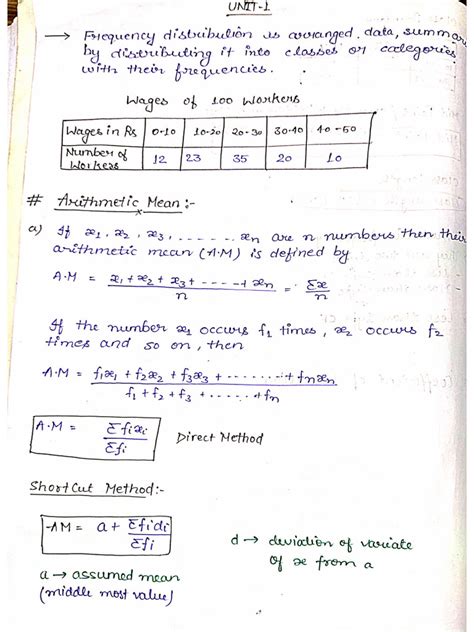 UNIT-1
→ Frequency distribution is arranged data, summar
by distributing it into classes or categories
with their frequencies.
Wages of 100 Workers
Wages in Rs 0-10 10-20 20-30 30-40 40-50
Number of Workers 12 23 35 20 10
# Arithmetic Mean :-
a) If x1, x2, x3, ------, xn are n numbers then their
arithmetic mean (A.M) is defined by
A.M = (x1 + x2 + x3 + ----- + xn) / n = Σx / n
If the number x1 occurs f1 times, x2 occurs f2
times and so on, then
A.M = (f1x1 + f2x2 + f3x3 + ........ + fnxn) / (f1 + f2 + f3 + ...... + fn)
A.M = Σfixi / Σfi Direct Method
ShortCut Method:-
AM = a + Σfidi / Σfi
d → deviation of variate
of x from a
a → assumed mean
(middle most value)